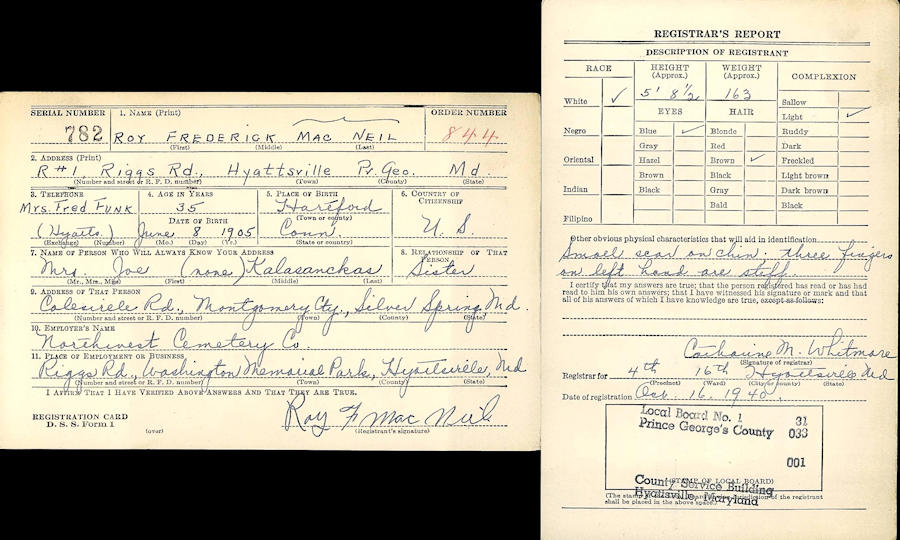 SERIAL NUMBER 1. NAME (Print) ORDER NUMBER
782 ROY FREDERICK MAC NEIL 844
(First) (Middle) (Last)
2. ADDRESS (Print)
R#1, Riggs Rd., Hyattsville Pr. Geo. Md.
(Number and street or R. F. D. number) (Town) (County) (State)
3. TELEPHONE 4. AGE IN YEARS 5. PLACE OF BIRTH 6. COUNTRY OF CITIZENSHIP
Mrs. Fred Funk 35 Hartford
DATE OF BIRTH (Town or county) U. S.
(Hyatts.) June 8 1905 Conn.
(Exchange) (Number) (Mo.) (Day) (Yr.) (State or country)
7. NAME OF PERSON WHO WILL ALWAYS KNOW YOUR ADDRESS 8. RELATIONSHIP OF THAT PERSON
Mrs. Joe (none) Kalasanckas Sister
(Mr., Mrs., Miss) (First) (Middle) (Last)
9. ADDRESS OF THAT PERSON
Colesville Rd., Montgomery Cty., Silver Spring, Md.
(Number and street or R. F. D. number) (Town) (County) (State)
10. EMPLOYER'S NAME
Northwest Cemetery Co.
11. PLACE OF EMPLOYMENT OR BUSINESS
Riggs Rd., Washington Memorial Park, Hyattsville, Md
(Number and street or R. F. D. number) (Town) (County) (State)
I AFFIRM THAT I HAVE VERIFIED ABOVE ANSWERS AND THAT THEY ARE TRUE.
REGISTRATION CARD
D. S. S. Form 1 Roy F Mac Neil
(over) (Registrant's signature)
REGISTRAR'S REPORT
DESCRIPTION OF REGISTRANT
RACE HEIGHT (Approx.) WEIGHT (Approx.) COMPLEXION
White ✓ 5' 8½ 163 Sallow
EYES HAIR Light ✓
Negro Blue ✓ Blonde Ruddy
Gray Red Dark
Oriental Hazel Brown ✓ Freckled
Brown Black Light brown
Indian Black Gray Dark brown
Bald Black
Filipino
Other obvious physical characteristics that will aid in identification
Small scar on chin; three fingers
on left hand are stiff.
I certify that my answers are true; that the person registered has read or has had
read to him his own answers; that I have witnessed his signature or mark and that
all of his answers of which I have knowledge are true, except as follows:
Catharine M. Whitmore
(Signature of registrar)
Registrar for 4th 16th Hyattsville Md
(Precinct) (Ward) (City or county) (State)
Date of registration Oct. 16, 1940.
Local Board No. 1 31
Prince George's County 033
001
County Service Building
(STAMP OF LOCAL BOARD)
Hyattsville, Maryland
(The stamp of jurisdiction of the registrant
shall be placed in the above space.)